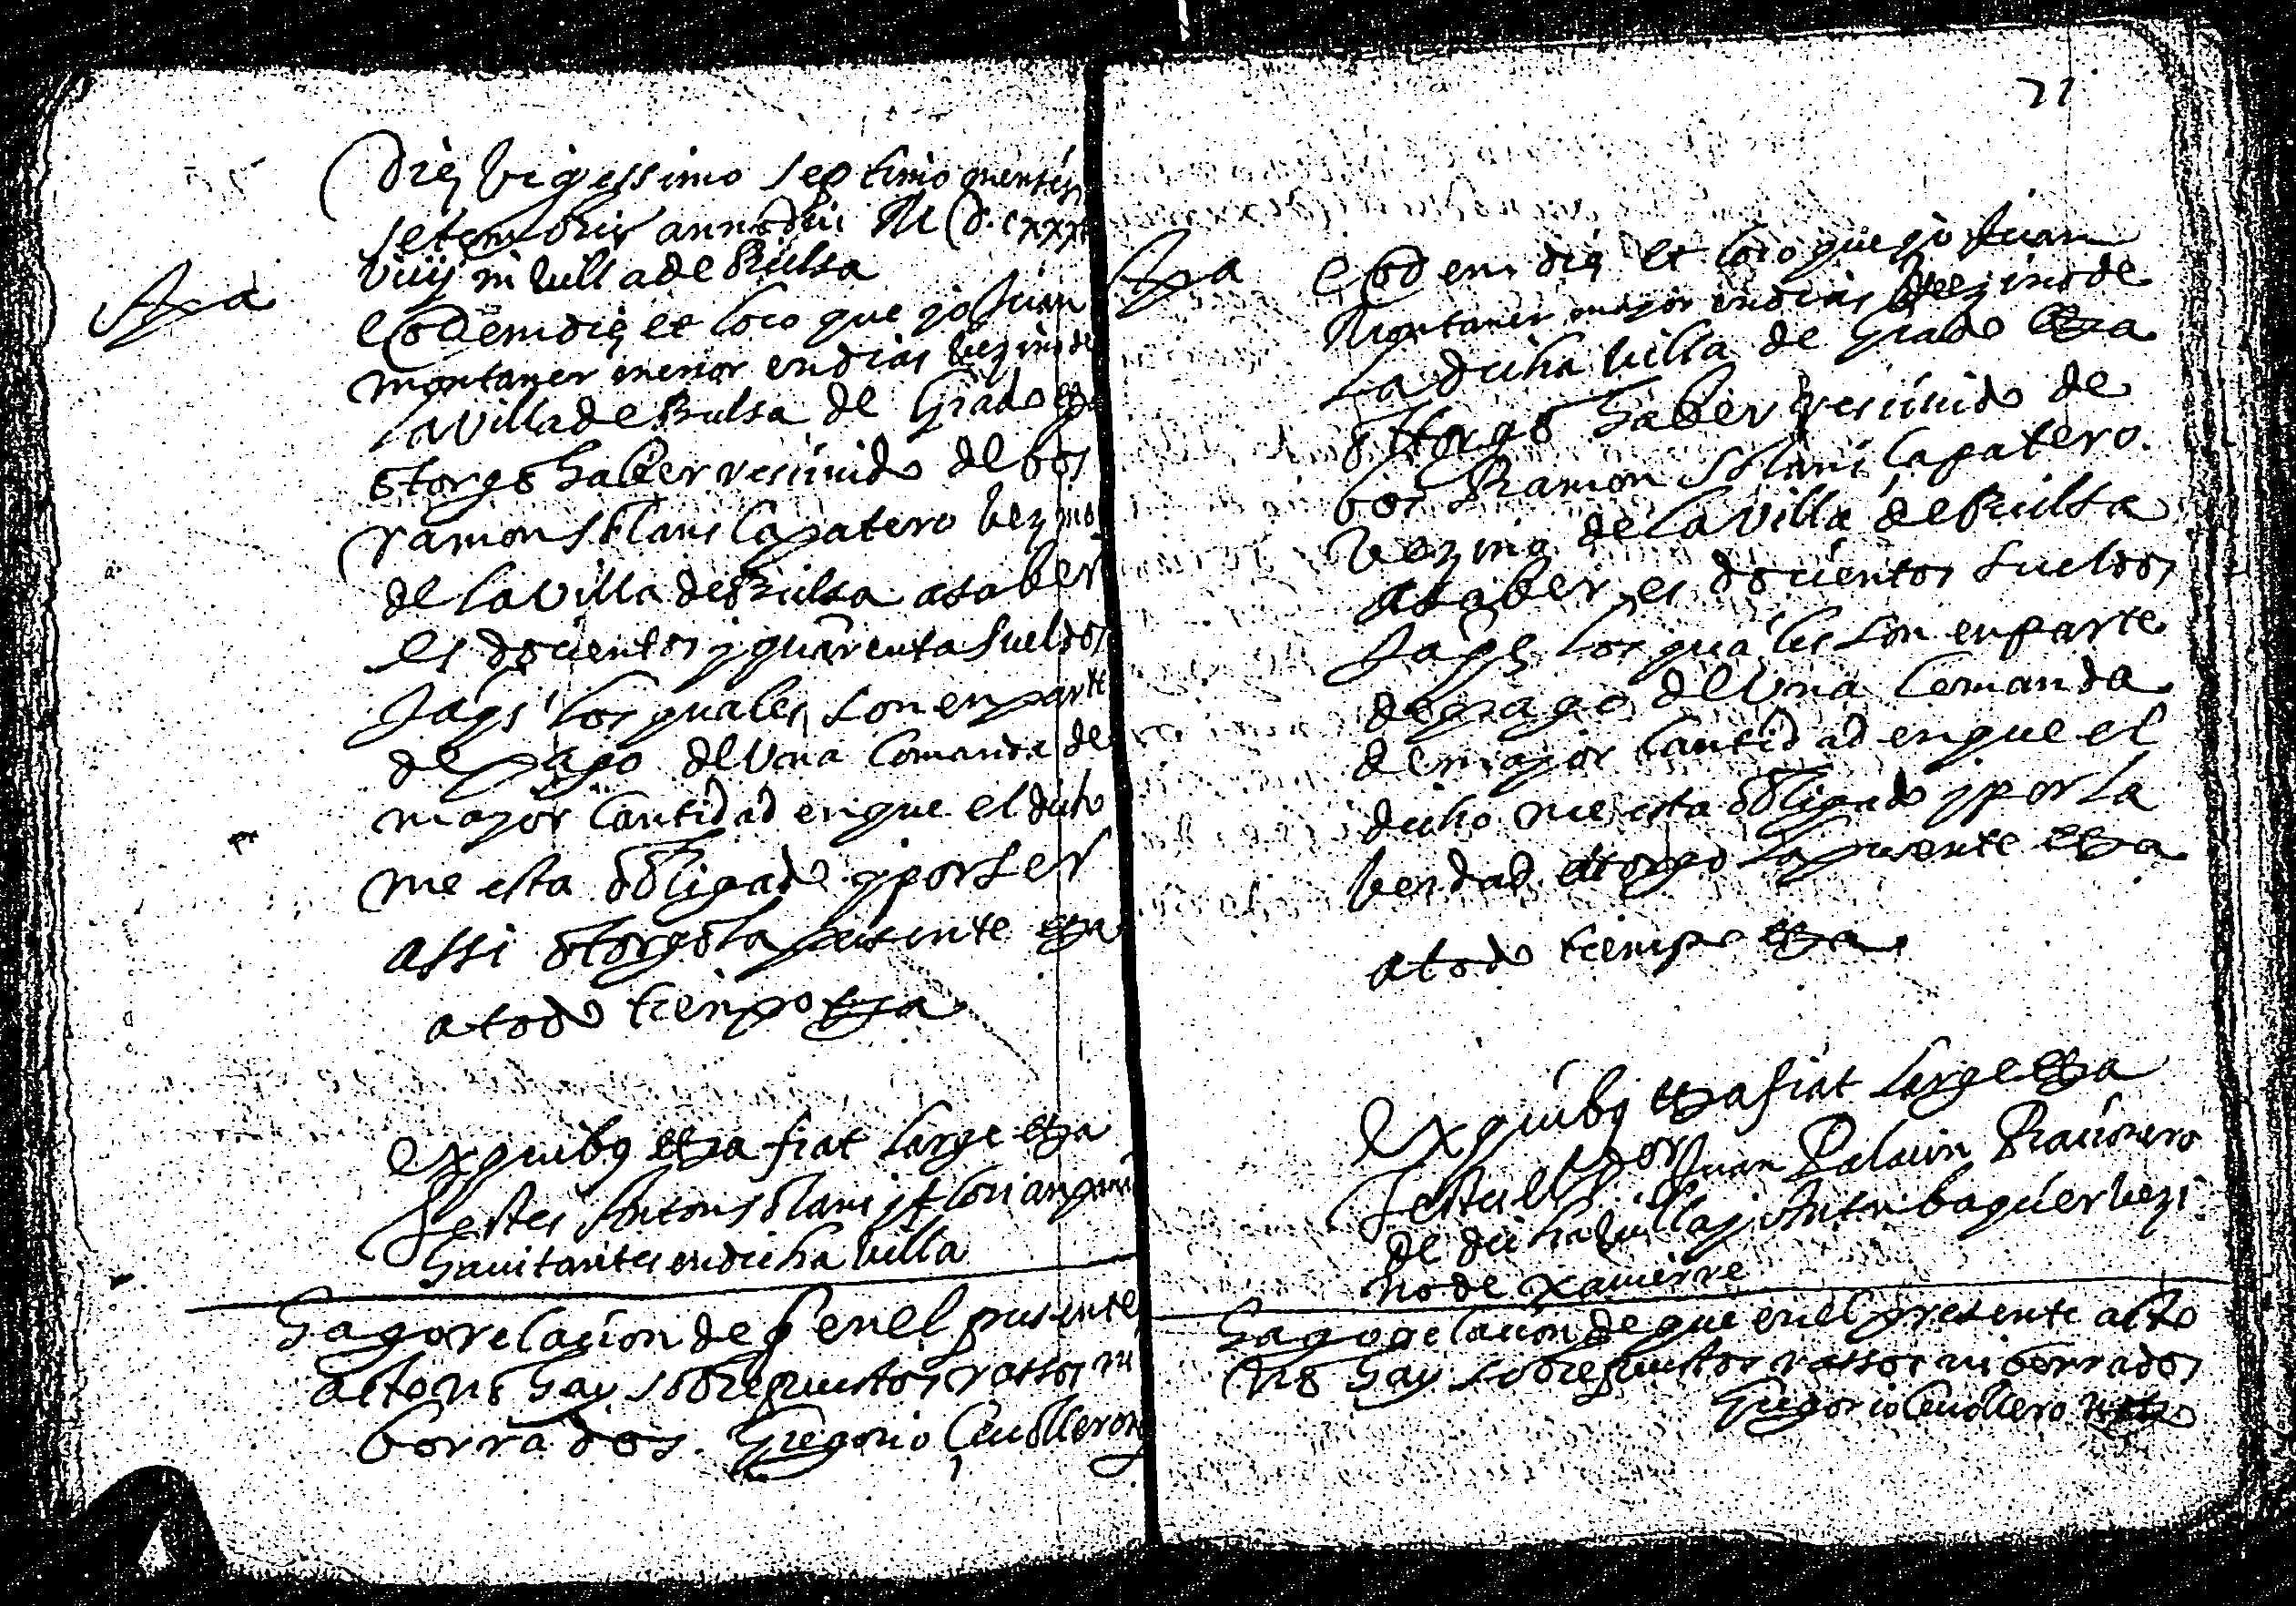 Die Vigessimo septimo mensis
setembris anno dni M D. c xxx
viiij in villa de Bulsa
Apa
Eodem die et loco que yo Juan
montaner menor en dias vezino de
la villa de Bulsa de Grado etta
otorgo haber resciuido de bos
ramon solani çapatero vezino
de la villa de Bulsa a saber
es docientos y quarenta sueldos
Jaqs los quales son en parte
de pago de Una comanda de
mayor cantidad en que el dicho
me esta obligado y por ser
assi otorgo la presente etta
a todo tiempo etta
Ex quibus etta fiat large etta
Testes Anton solani
hauitantes en dicha villa
Hago relacion de q en el presente
acto no hay sobrepuestos rassos ni
borrados. Gregorio Ceuollero
71
Apa
Eodem die et loco que yo Juan
Montaner mayor en dias vezino de
la dicha villa de Grado etta
ottorgo haber rescíuido de
bos Ramon Solani çapatero
vezino de la villa de Bulsa
a saber es docientos sueldos
Jaqs los quales son en parte
de pago de Una Comanda
de mayor cantidad en que el
dicho me esta obligado y por la
verdad otorgo la presente etta
a todo tiempo etta
Ex quibus etta fiat large etta
Testes Juan Palacin Racionero
de dicha villa y Anton baguer vezi
no de Xauierre
Hago relacion de que en el presente acto
no hay sobrepuestos rassos ni borrados
Gregorio Ceuollero notº